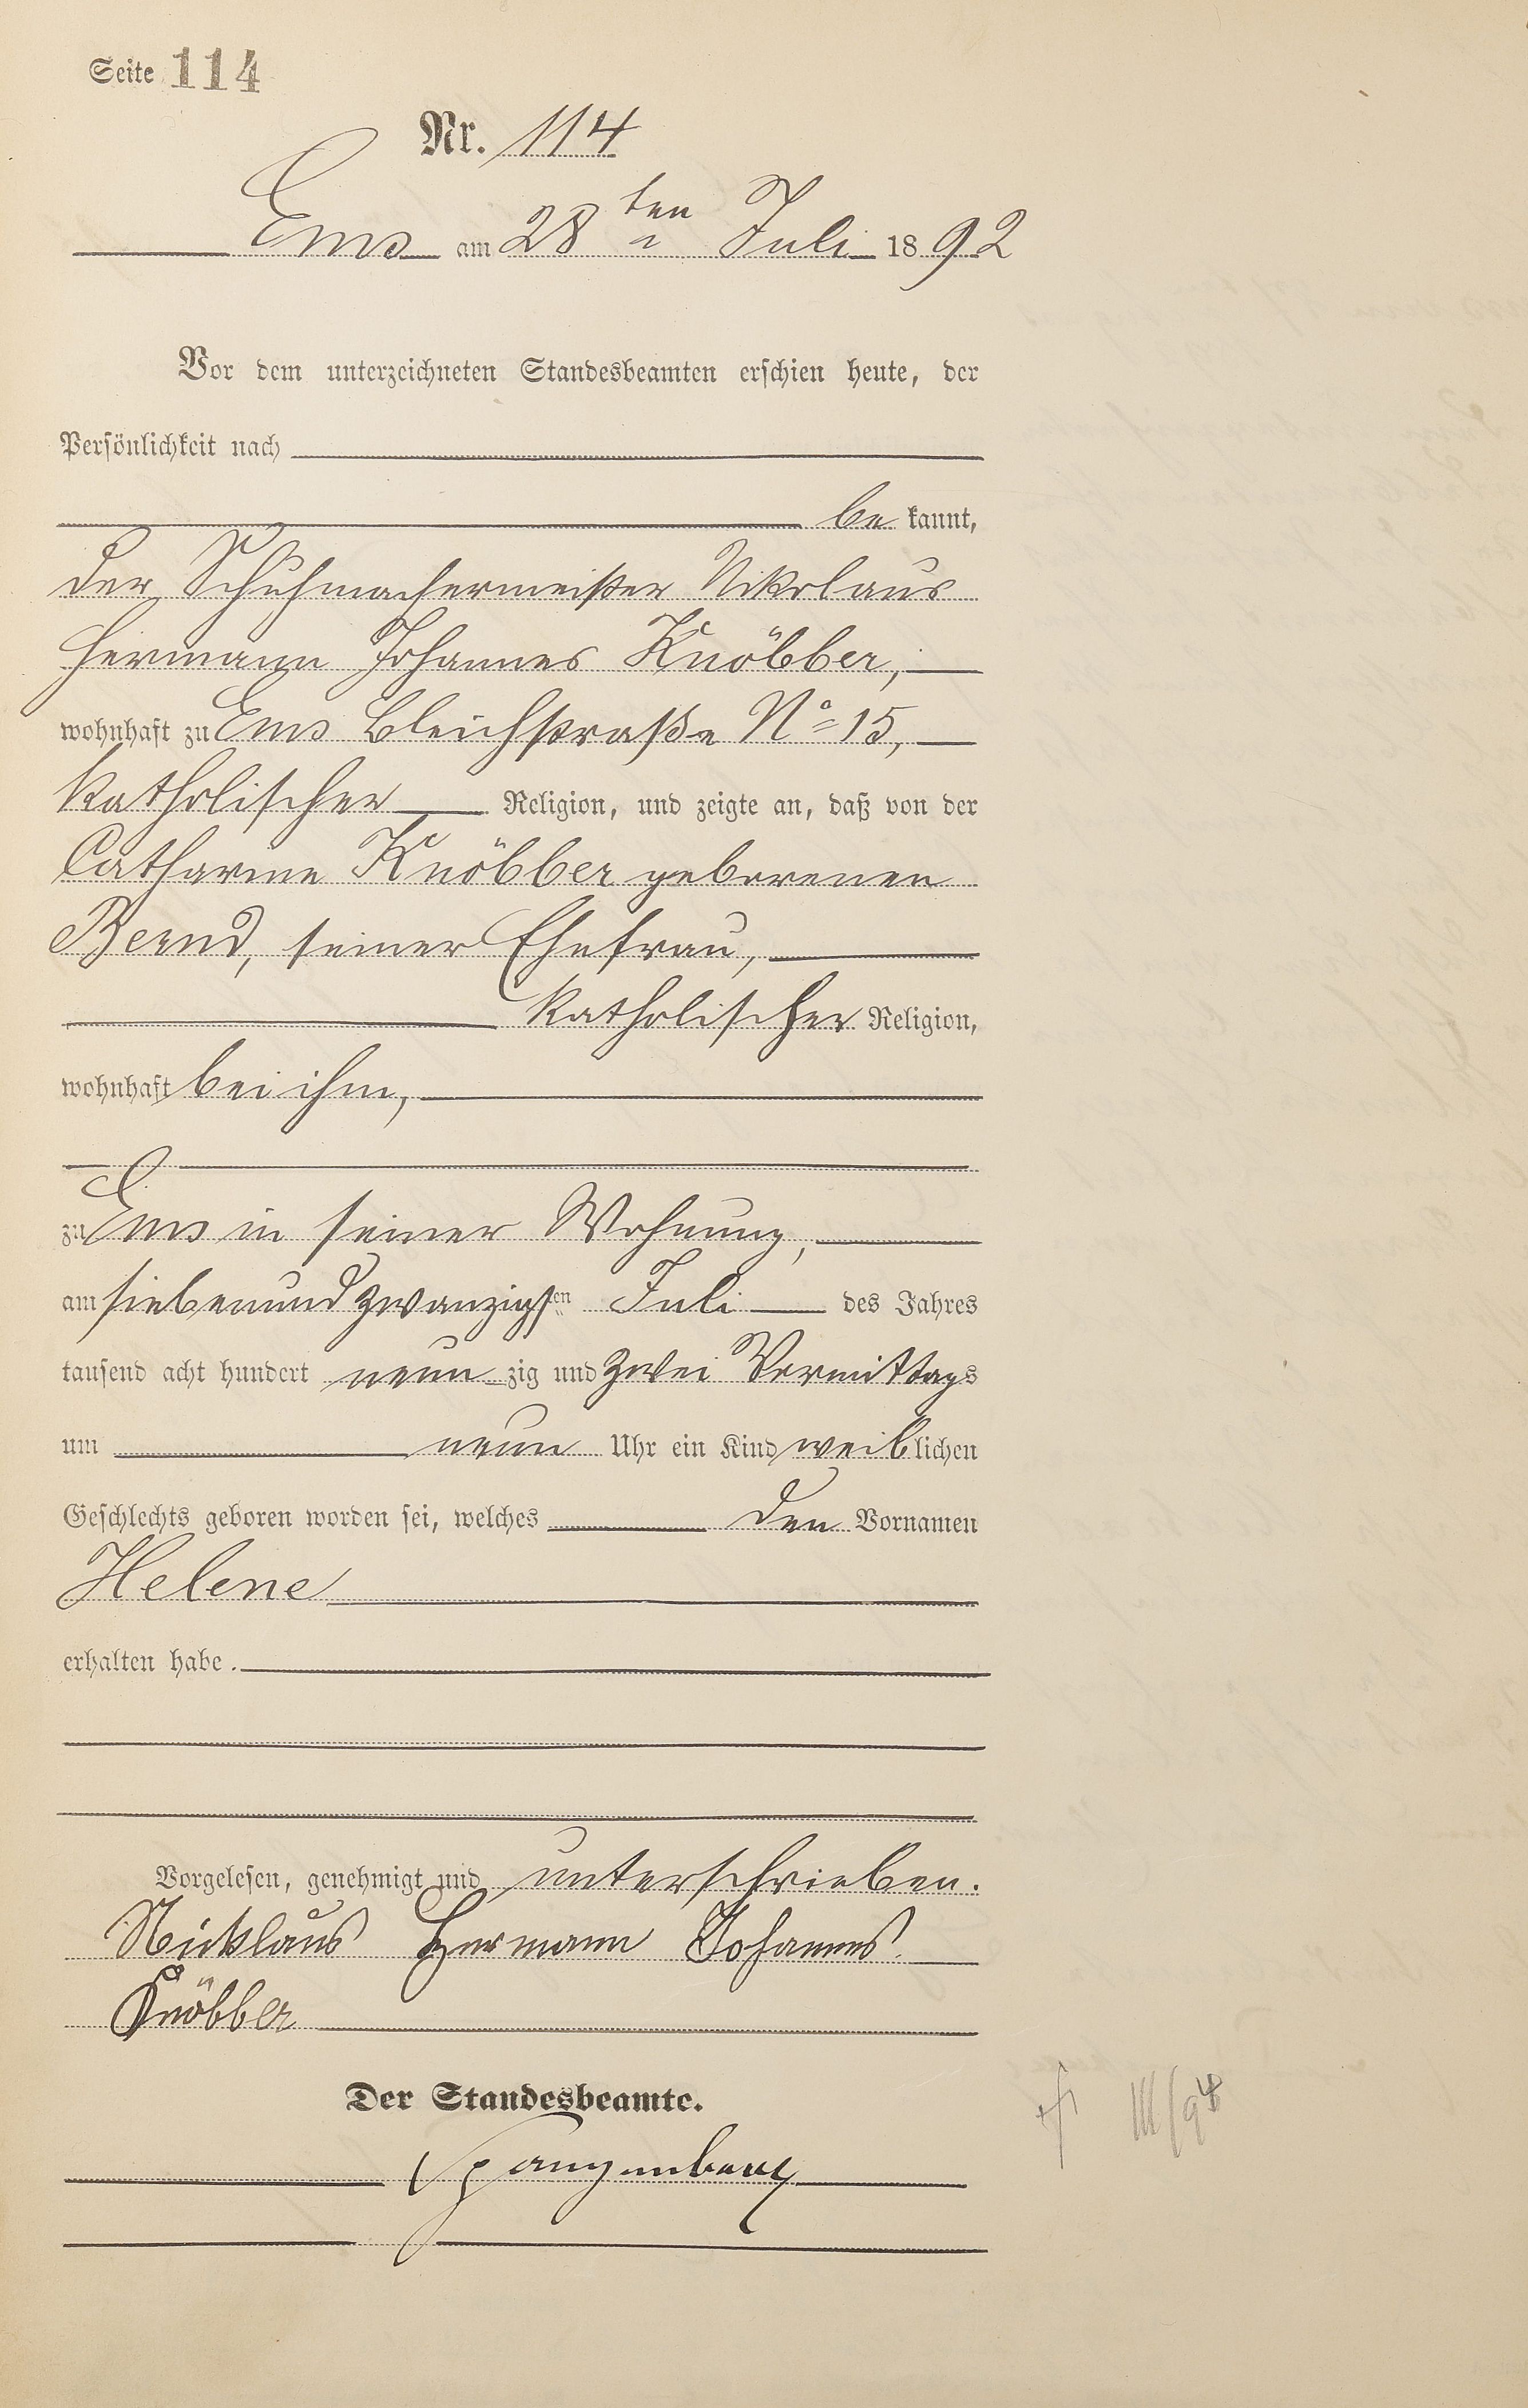 Seite 114
Nr. 114
Ems am 28ten Juli 1892
Vor dem unterzeichneten Standesbeamten erschien heute, der
Persönlichkeit nach
be kannt,
der Schuhmachermeister Nikolaus
Hermann Johannes Knöbber,
wohnhaft zu Ems Bleichstraße No 15,
katholischer Religion, und zeigte an, daß von der
Catharina Knöbber geborenen
Bernd, seiner Ehefrau,
katholischer Religion,
wohnhaft bei ihm,
zu Ems in seiner Wohnung,
am siebenundzwanzigsten Juli des Jahres
tausend acht hundert neunzig und zwei Vormittags
um neun Uhr ein Kind weiblichen
Geschlechts geboren worden sei, welches den Vornamen
Helene
erhalten habe.
Vorgelesen, genehmigt und unterschrieben.
Nicklaus Hermann Johannes
Knöbber
Der Standesbeamte.
Spangenberg
III/94